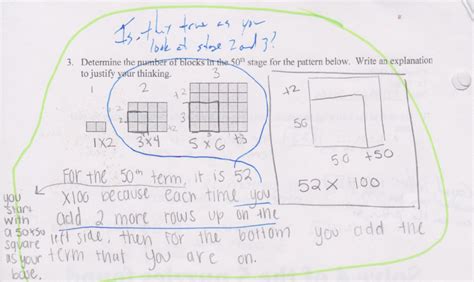 Is this true as you
look at stage 2 and 3?
3. Determine the number of blocks in the 50th stage for the pattern below. Write an explanation
to justify your thinking.
1 2 3
+2 +2 +2
+2 +3
1x2 3x4 5x6
+2
50
50 +50
52 x 100
For the 50th term, it is 52
x100 because each time you
add 2 more rows up on the
left side, then for the bottom you add the
term that you are on.
you
start
with
a 50x50
square
as your
base.